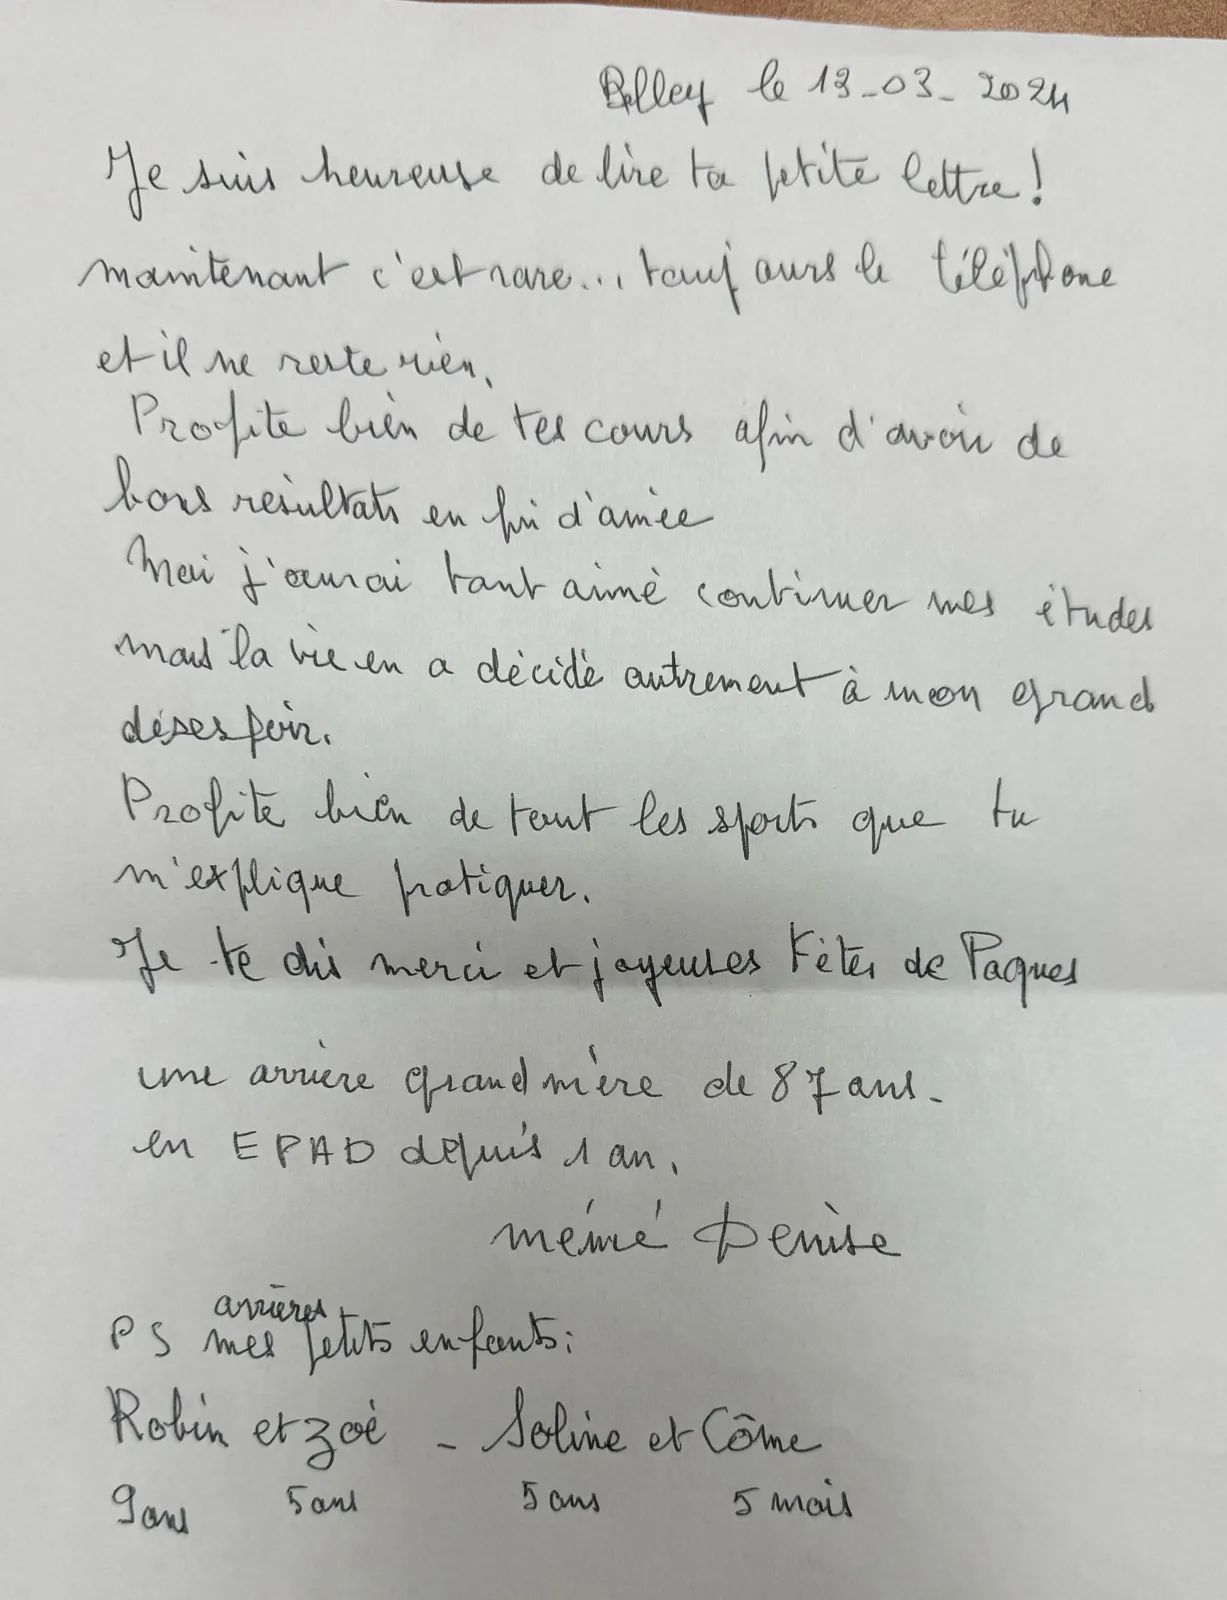 Belley le 13-03-2024
Je suis heureuse de lire ta petite lettre!
maintenant c'est rare... toujours le téléphone
et il ne reste rien.
Profite bien de tes cours afin d'avoir de
bons résultats en fin d'année
Moi j'aurai tant aimé continuer mes études
mais la vie en a décidé autrement à mon grand
désespoir.
Profite bien de tout les sports que tu
m'explique pratiquer.
Je te dis merci et joyeuses Fêtes de Paques
une arrière grand mère de 87 ans-
en EPAD depuis 1 an.
mémé Denise
arrières
PS mes petits enfants:
Robin et Zoé - Soline et Côme
9ans 5 ans 5 ans 5 mois